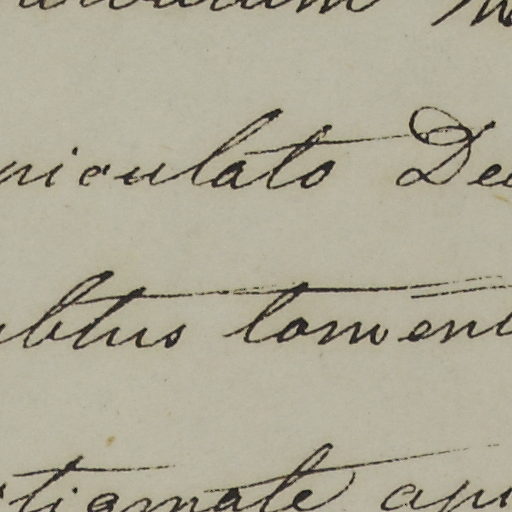 niculato De
ubtus toment
stigmate api